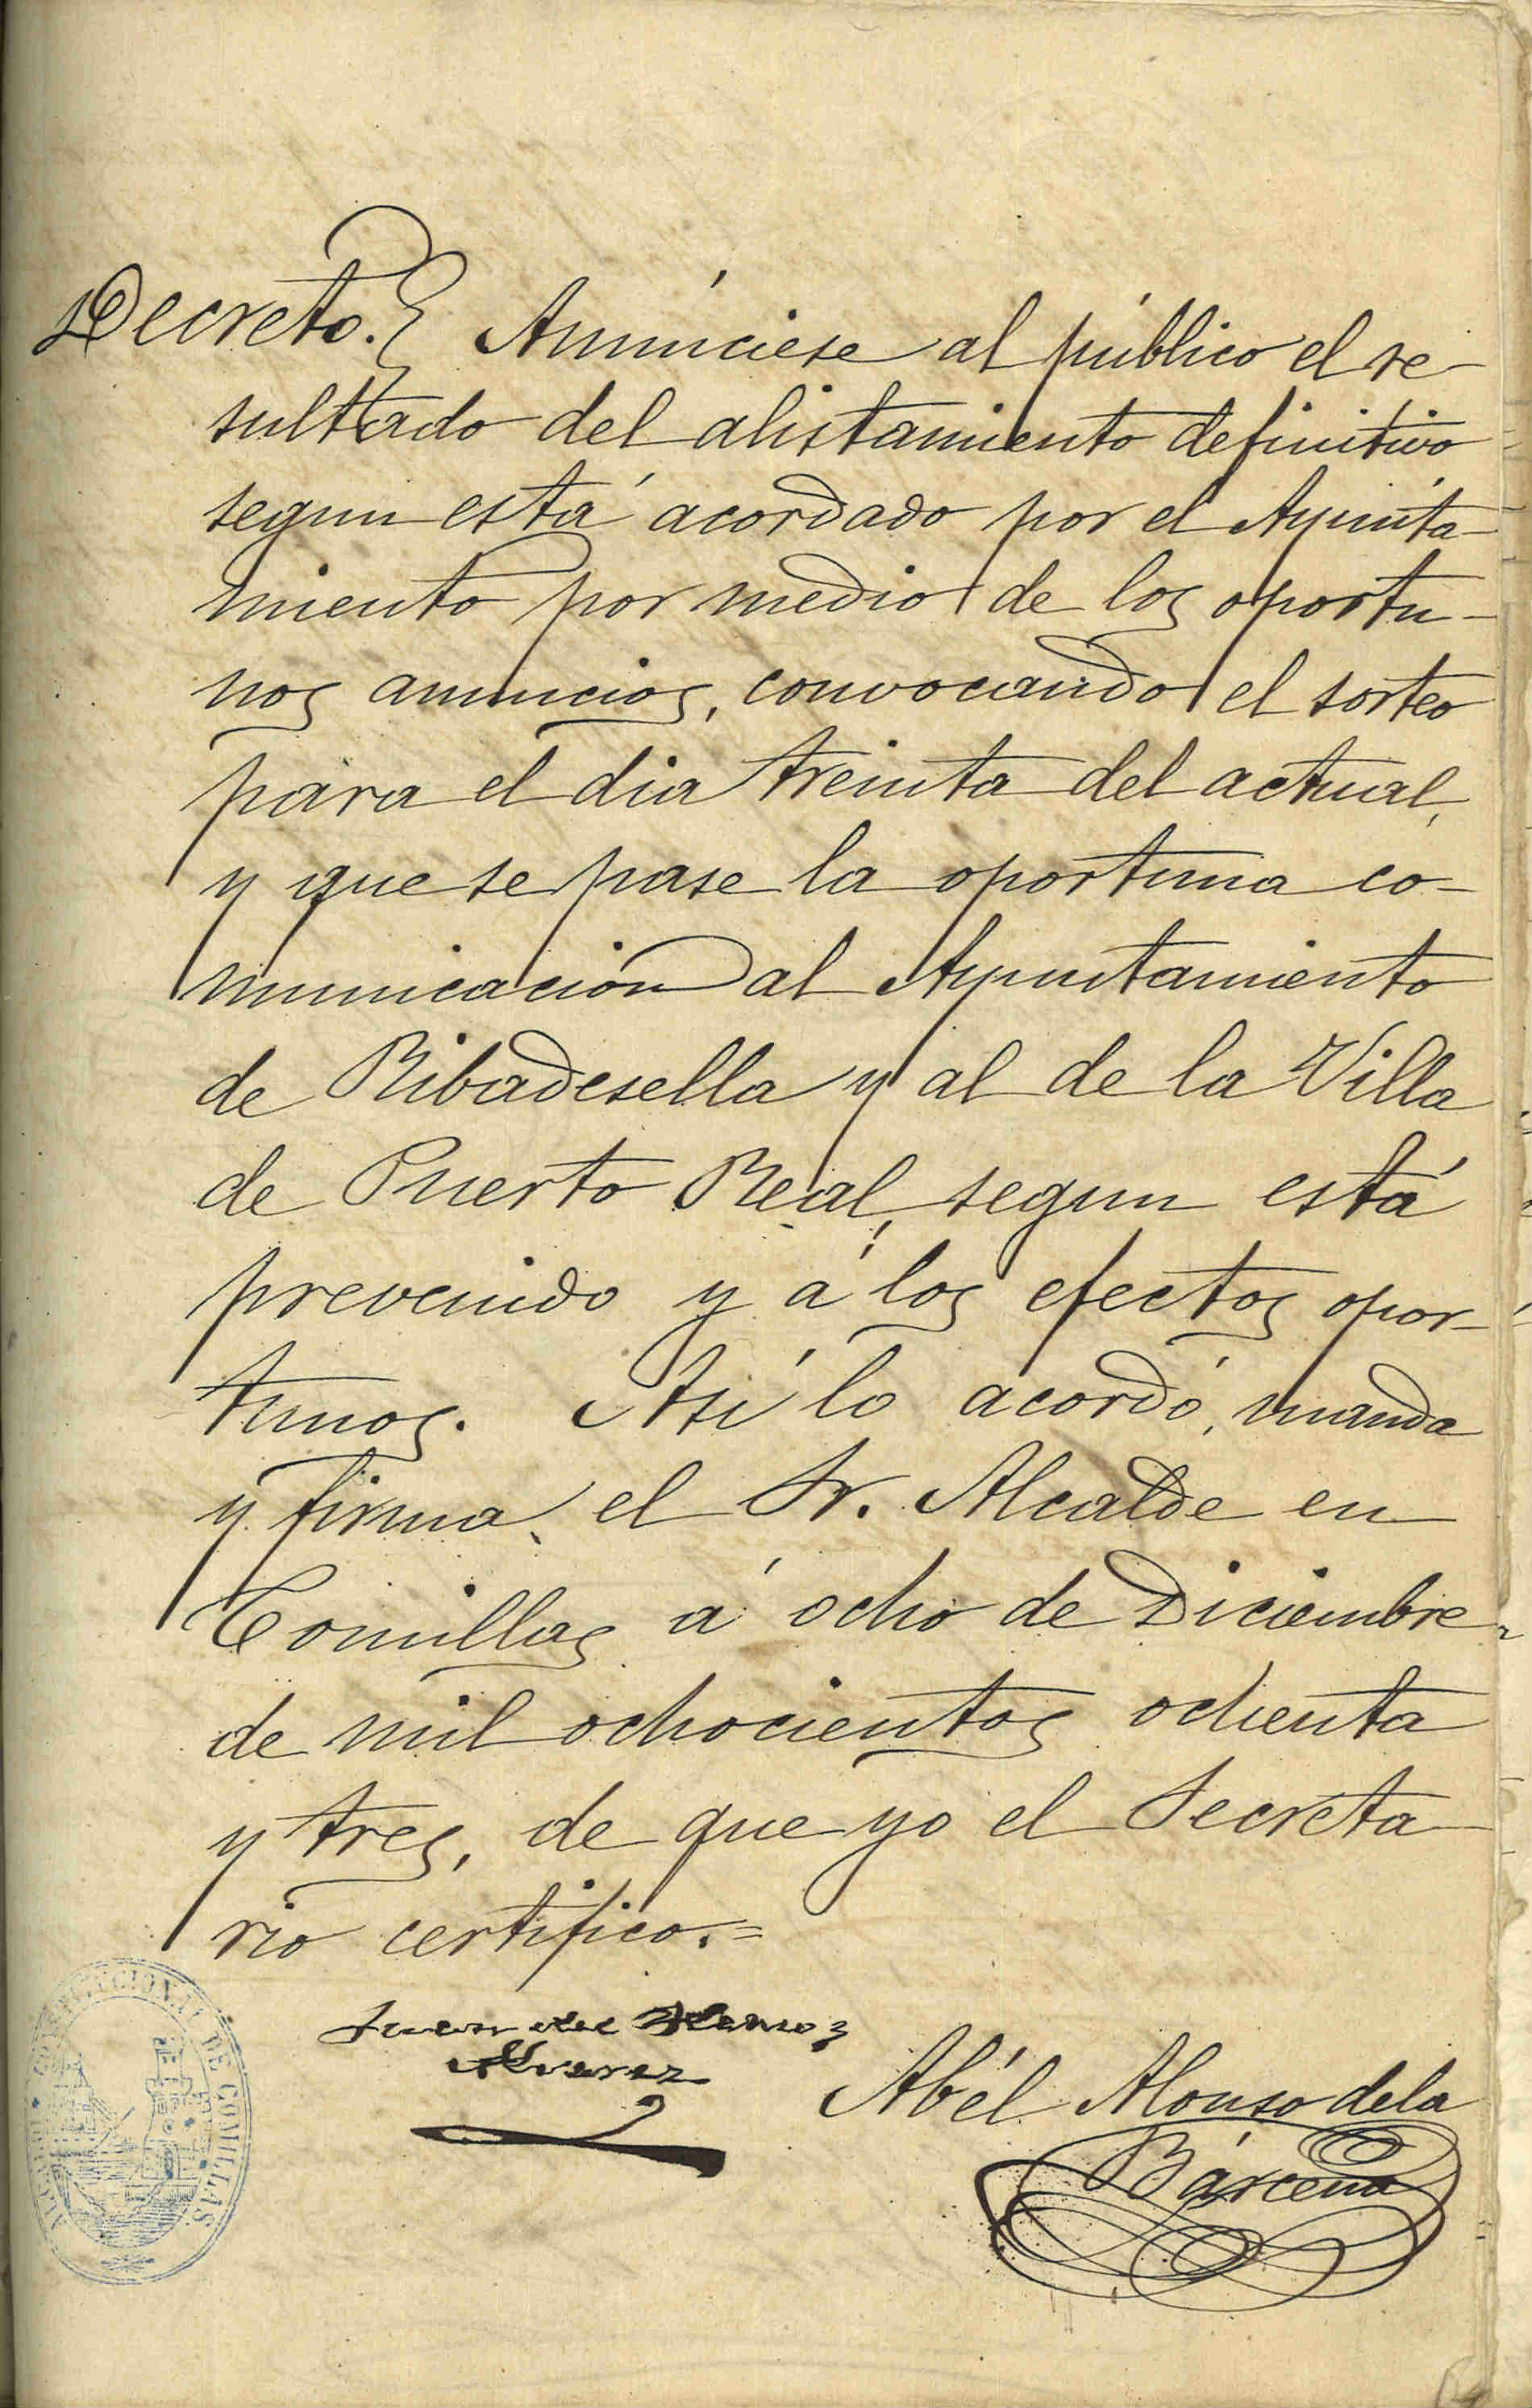 Decreto. Anúnciese al público el re-
sultado del alistamiento definitivo
segun está acordado por el Ayunta-
miento por medio de los oportu-
nos anuncios, convocando el sorteo
para el dia treinta del actual,
y que se pase la oportuna co-
municación al Ayuntamiento
de Ribadesella y al de la Villa
de Puerto Real, segun está
prevenido y á los efectos opor-
tunos. Así lo acordó, manda
y firma, el Sr. Alcalde en
Comillas á ocho de Diciembre
de mil ochocientos ochenta
y tres, de que yo el Secreta-
rio certifico.=
Juan
Alvarez
Abél Alonso de la
Bárcena
ALCALDIA CONSTITUCIONAL DE COMILLAS